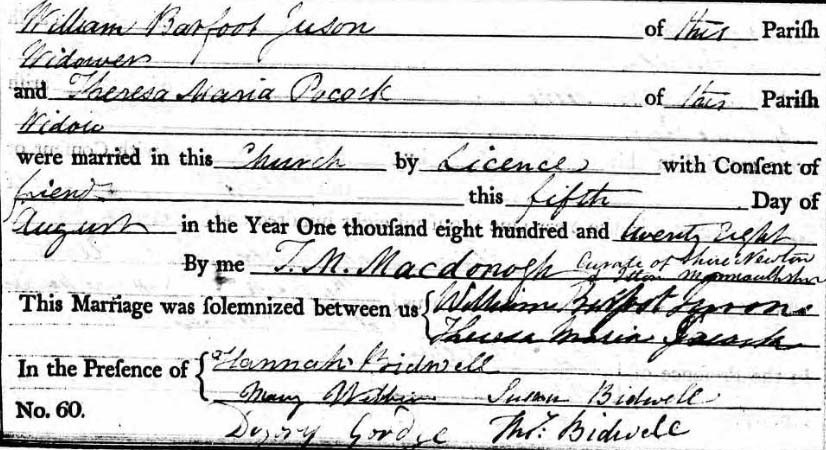 William Barfoot Juson of this Pariſh
Widower
and Theresa Maria Pocock of this Pariſh
Widow
were married in this Church by Licence with Conſent of
friends this fifth Day of
August in the Year One thouſand eight hundred and twenty Eight
By me T. M. Macdonogh Curate of Shire Newton
Monmouthshire
This Marriage was ſolemnized between us William Barfoot
Theresa Maria Pocock
In the Preſence of Hannah Bidwell
Mary Susan Bidwell
No. 60.
Thos. Bidwell